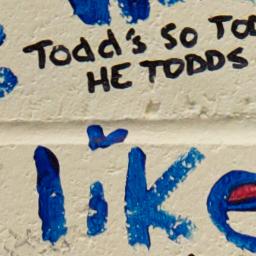 Todd's SO TOD
HE TODDS
like